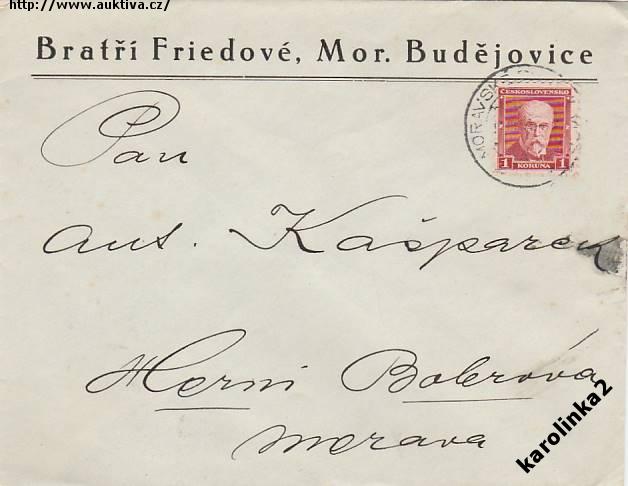 http://www.auktiva.cz/
Bratří Friedové, Mor. Budějovice
MORAVSK
ČESKOSLOVENSKO
1 KORUNA 1
Pan
Ant. Kašparek
Herni Bolerova
Morava
karolinka2